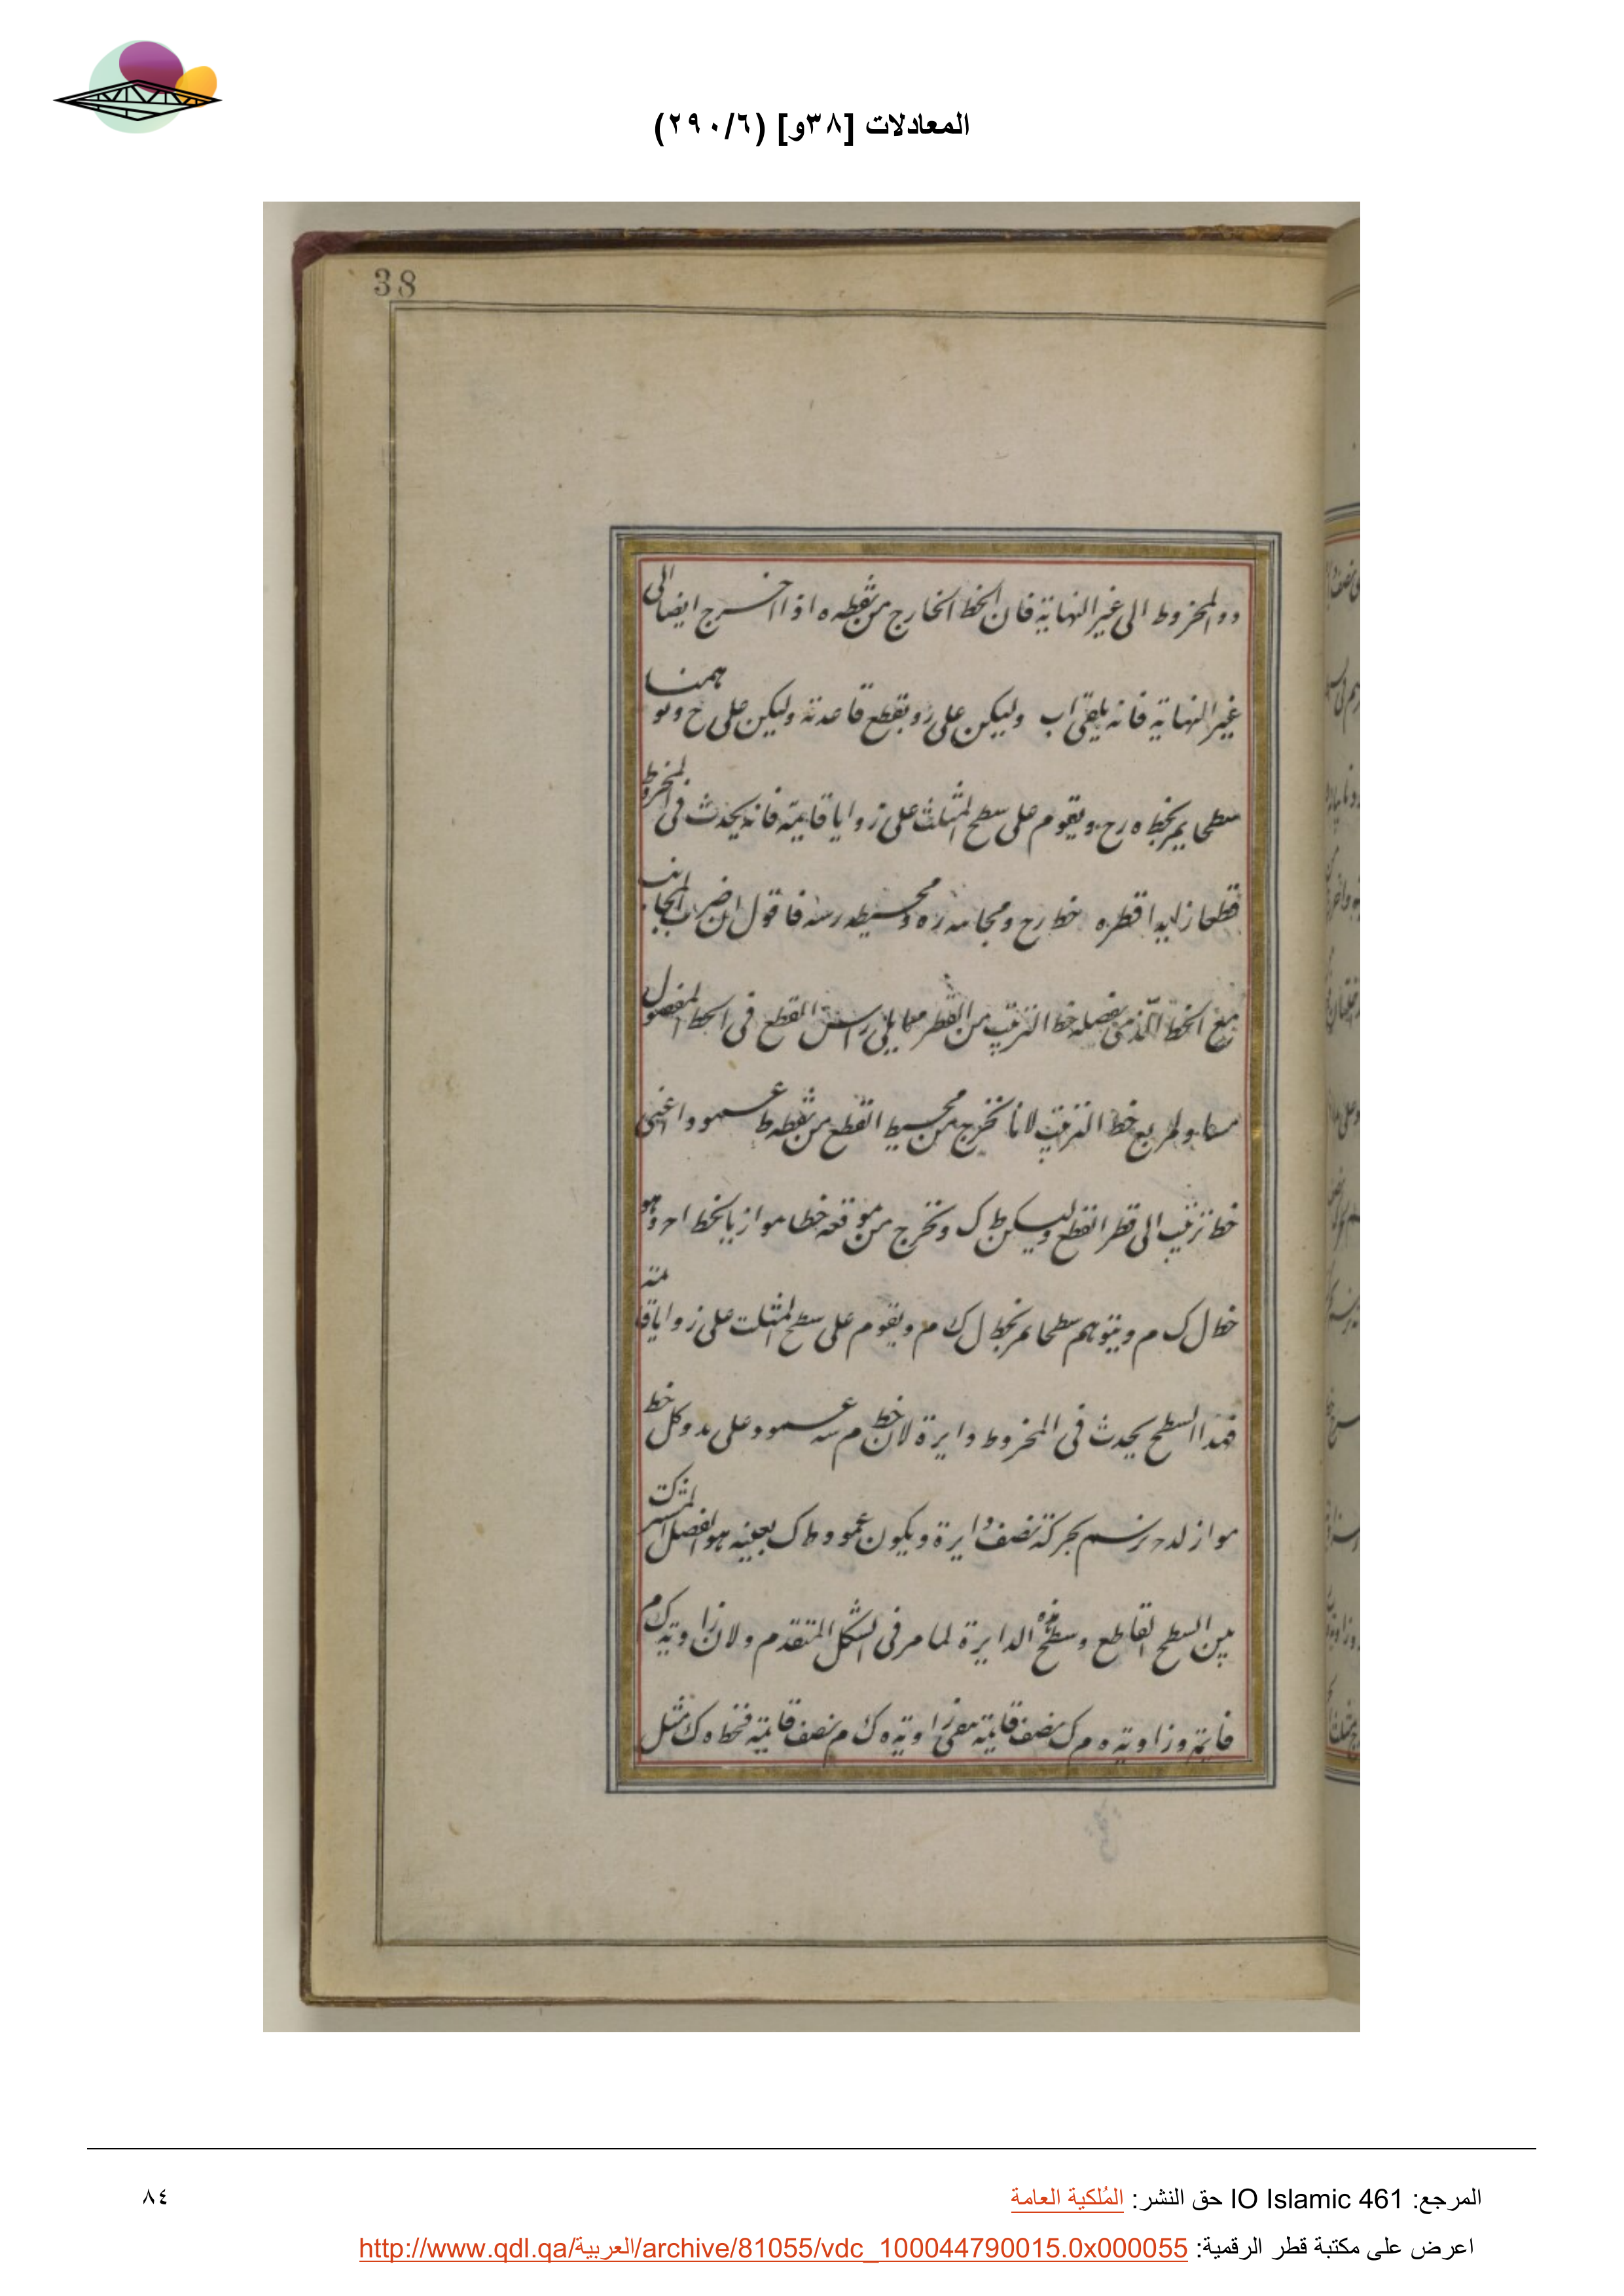 المعادلات [٣٨و] (٢٩٠/٦)
38
دو المخروط الى غير النهاية فان الخط الخارج من نقطه ه اذا اخرج ايضا الى
غير النهاية فانه يلقى اب وليكن على ر ويقطع قاعدته وليكن على ح ونتوهمنا
سطحا يمر بخط ه رح ويقوم على سطح المثلث على زوايا قايمة فانه يحدث فى المخروط
قطعا زايدا قطره خط رح ومجانبه ره ومحيطه رسه فاقول ان ضرب المجانب
مع الخط الذى يفصله خط الترتيب من القطر مما يلى راس القطع فى الخط المفصول
مساو لمربع خط الترتيب لانا نخرج من محيط القطع من نقطه ط عمودا اعنى
خط ترتيب الى قطر القطع وليكن ط ك ونخرج من موقعه خطا موازيا لخط ا حد وهو
خط ل ك م ونتوهم سطحا يمر بخط ل ك م ويقوم على سطح المثلث على زوايا قايمة
فهذا السطح يحدث فى المخروط دايرة لان خط م سه عمود على بد وكل خط
مواز لدح يرسم بحركته نصف دايرة ويكون عمود ط ك بعينه هو الفصل المشترك
بين السطح القاطع وسطح هذه الدايرة لما مر فى الشكل المتقدم ولان زاوية ك م
قايمة وزاوية ه م ك نصف قايمة تبقى زاوية ه ك م نصف قايمة فخط ه ك مثل
المرجع: IO Islamic 461 حق النشر: المُلكية العامة
٨٤
اعرض على مكتبة قطر الرقمية: http://www.qdl.qa/العربية/archive/81055/vdc_100044790015.0x000055